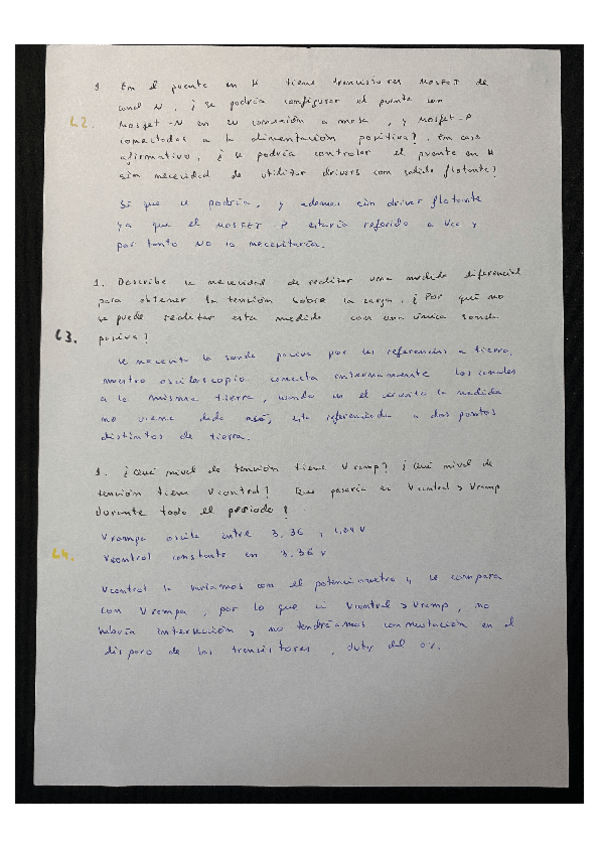 1 En el puente en H tiene transistores MOSFET de
canal N. ¿se podría configurar el puente con
L2.
Mosfet-N en su conexión a masa, y MOSFET-P
conectados a la alimentación positiva?. En caso
afirmativo, ¿se podría controlar el puente en H
sin necesidad de utilizar drivers con salida flotante?
Sí que se podría, y ademas sin driver flotante
ya que el MOSFET P estaría referido a Vcc y
por tanto NO lo necesitaría.
1. Describe la necesidad de realizar una medida diferencial
para obtener la tensión sobre la carga. ¿Por qué no
se puede realizar esta medida con una única sonda
L3.
pasiva?
Se necesita la sonda pasiva por las referencias a tierra,
nuestro osciloscopio conecta internamente los canales
a la misma tierra, cuando en el circuito la medida
no viene dada así, esta referenciada a dos puntos
distintos de tierra.
1. ¿Qué nivel de tensión tiene Vramp? ¿Qué nivel de
tensión tiene Vcontrol? Que pasaría si Vcontrol > Vramp
durante todo el periodo?
Vrampa oscila entre 3.36 y
L4.
Vcontrol constante en 3.36 V
Vcontrol la variamos con el potenciometro y se compara
con Vrampa, por lo que si Vcontrol > Vramp, no
habría intersección y no tendríamos conmutación en el
disparo de los transistores, duty del 0%.